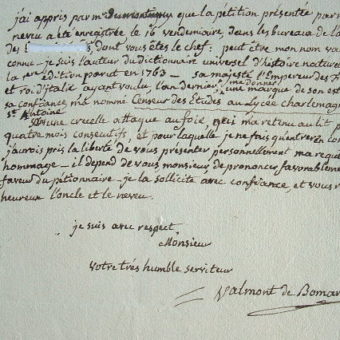 j'ai appris par mr dumontmny que la pétition présentée par m
neveu a été enregistrée le 16 vendemiaire, dans les bureaux de la
de dont vous êtes le chef: peut être mon nom va
connu. je suis l'auteur du Dictionnaire universel d'histoire nature
la 1ere édition parut en 1763 — sa majesté l'Empereur des F
et roi d'Italie ayant voulu, l'an dernier, me donner une marque de son es
sa confiance m'a nommé Censeur des Etudes au Lycée charlemagn
st Antoine
une cruelle attaque au foie, qui m'a retenu au lit p
quatre mois consécutifs, et pour laquelle je ne fais qu'entrer en
j'aurois pris la liberté de vous présenter personnellement ma requ
hommage — il dépend de vous monsieur, de prononcer favorableme
faveur du pétionnaire — je la sollicite avec confiance, et vous r
heureux l'oncle et le neveu.
je suis avec respect,
Monsieur
votre très humble serviteur
Valmont de Bomar